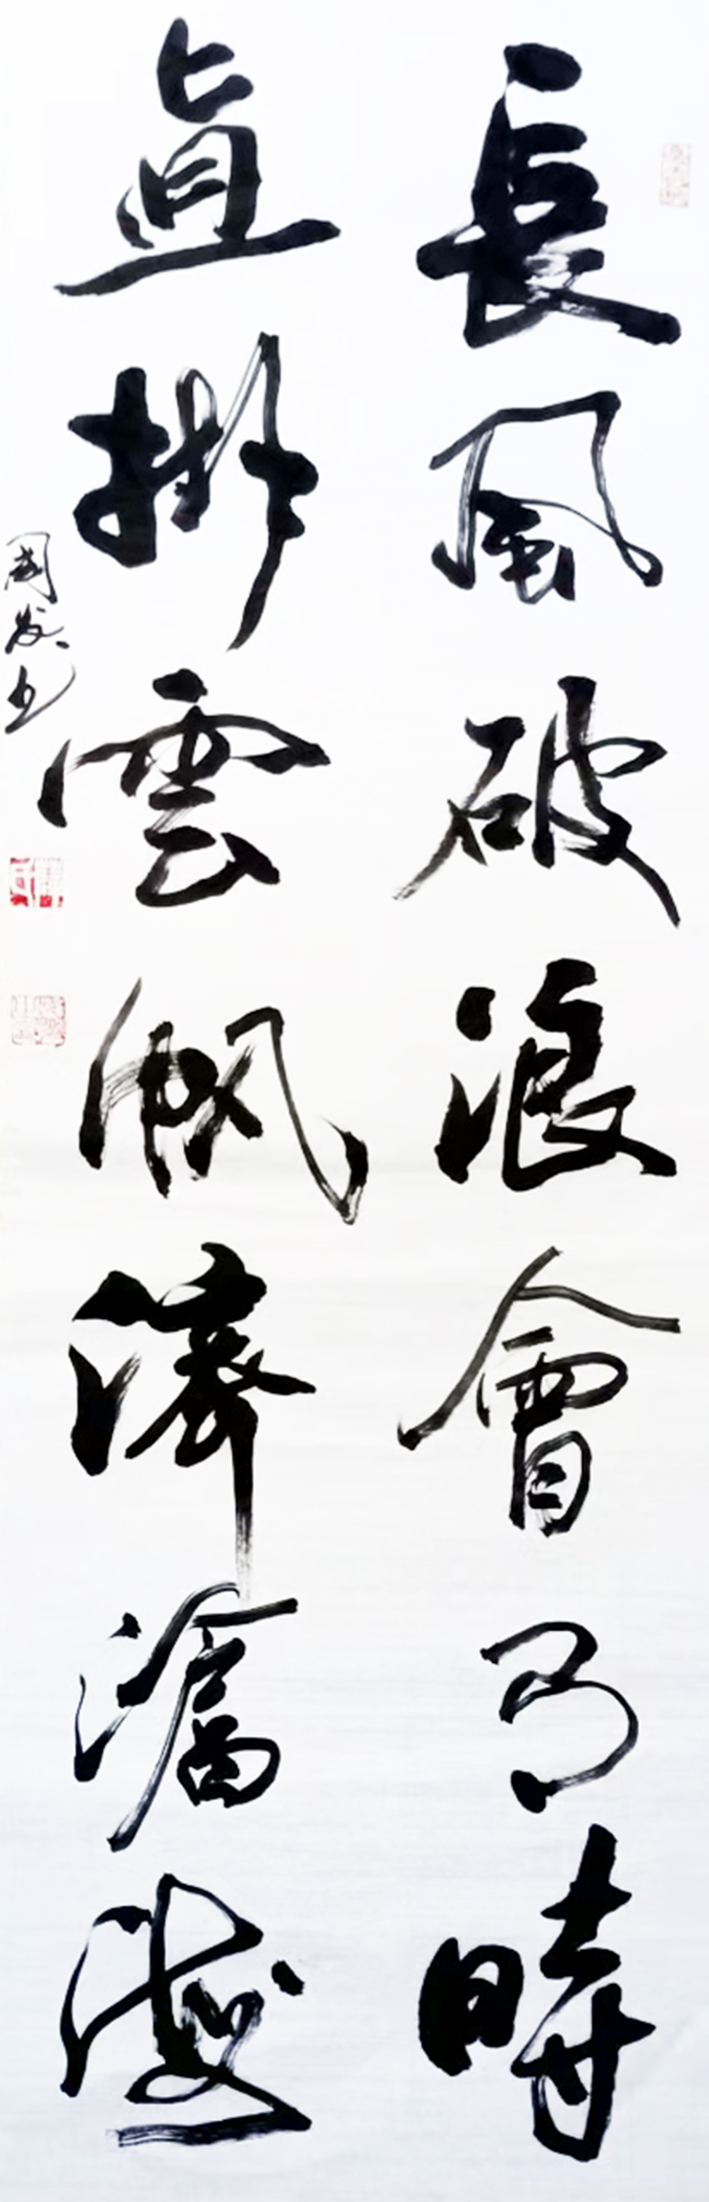 長風破浪會有時
直掛雲帆濟滄海
國發書